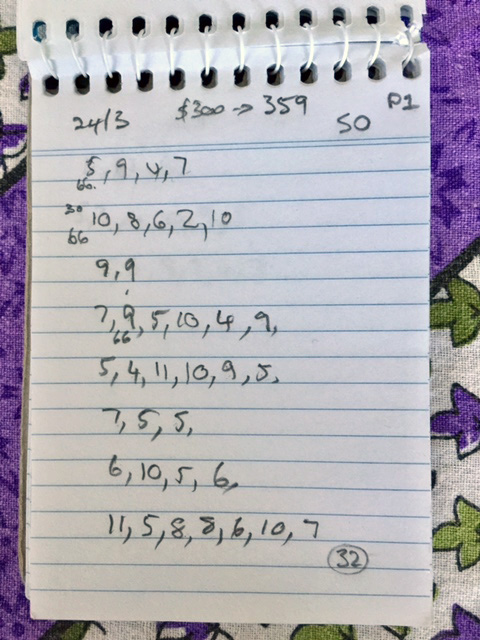 24/3 $300 → 359 SO P1
5, 9, 4, 7
66.
30
10, 8, 6, 2, 10
66
9, 9
7, 9, 5, 10, 4, 9,
66
5, 4, 11, 10, 9, 5,
7, 5, 5,
6, 10, 5, 6,
11, 5, 8, 8, 6, 10, 7
32